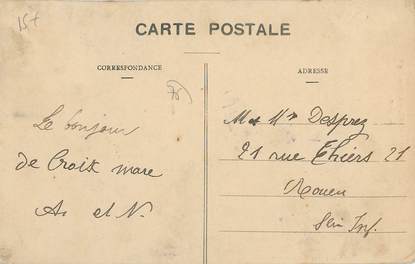 15+
CARTE POSTALE
CORRESPONDANCE
ADRESSE
76
Le bonjour
de Croix mare
A. et N.
M et Mme Desprez
21 rue Thiers 21
Rouen
Sein Inf.